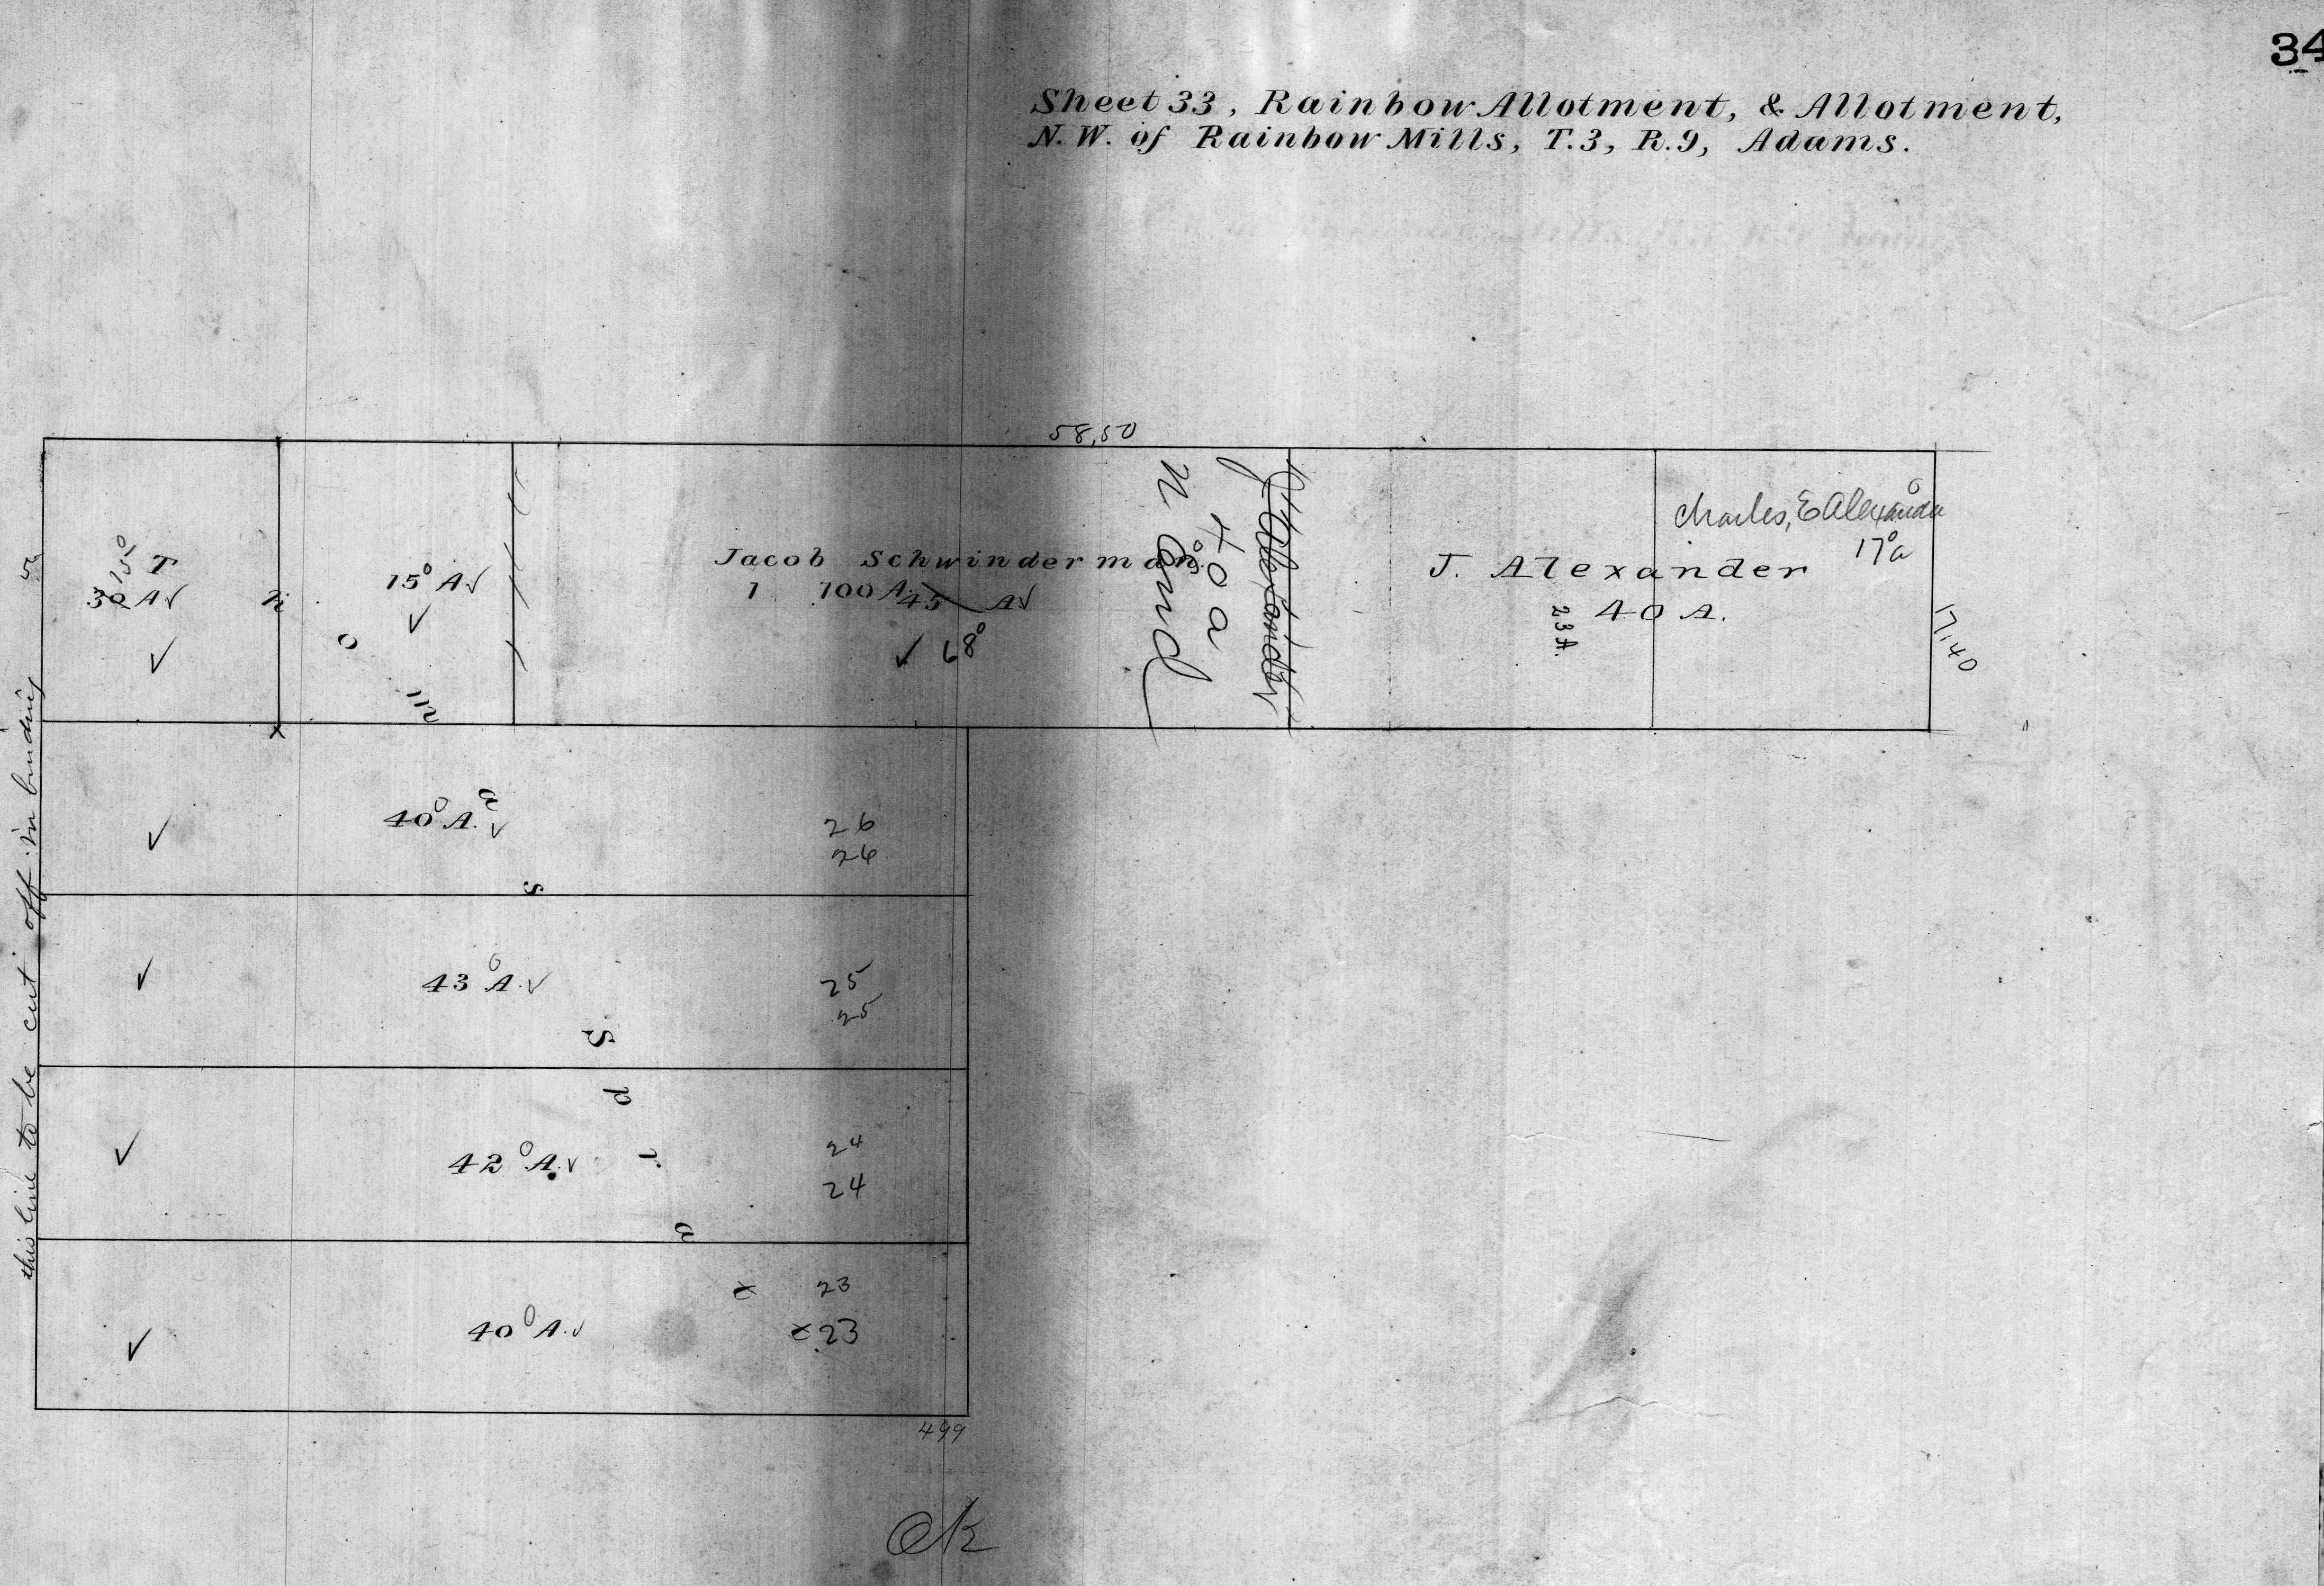 34
Sheet 33, Rainbow Allotment, & Allotment,
N. W. of Rainbow Mills, T. 3, R. 9, Adams.
58,50
T
30 A
15° A
Jacob Schwinderman
1 100 A. 45 A
68°
N End
40 a
J. Alexander
40 A.
23 A.
Charles, E Alexander
17° a
17,40
this line to be cut off in binding
40° A.
26
26
43° A.
25
25
42° A.
24
24
40° A.
23
23
499
Ok